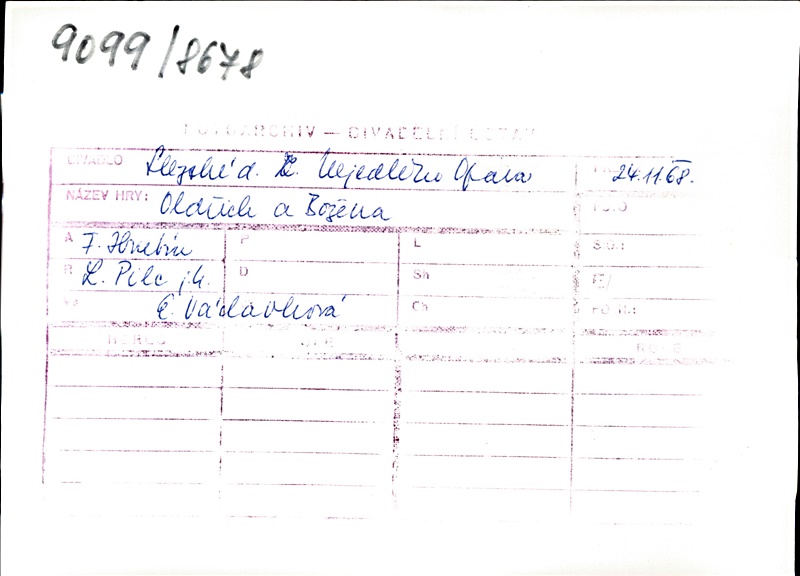 9099/8678
FOTOARCHIV — DIVADELNÍ ÚSTAV
DIVADLO Slezské d. Z. Nejedlého Opava 24.11.68.
NÁZEV HRY: Oldřich a Božena
A F. Hrubín P L
R L. Pilc j.h. D Sh
E. Václavková Ch
HEREC